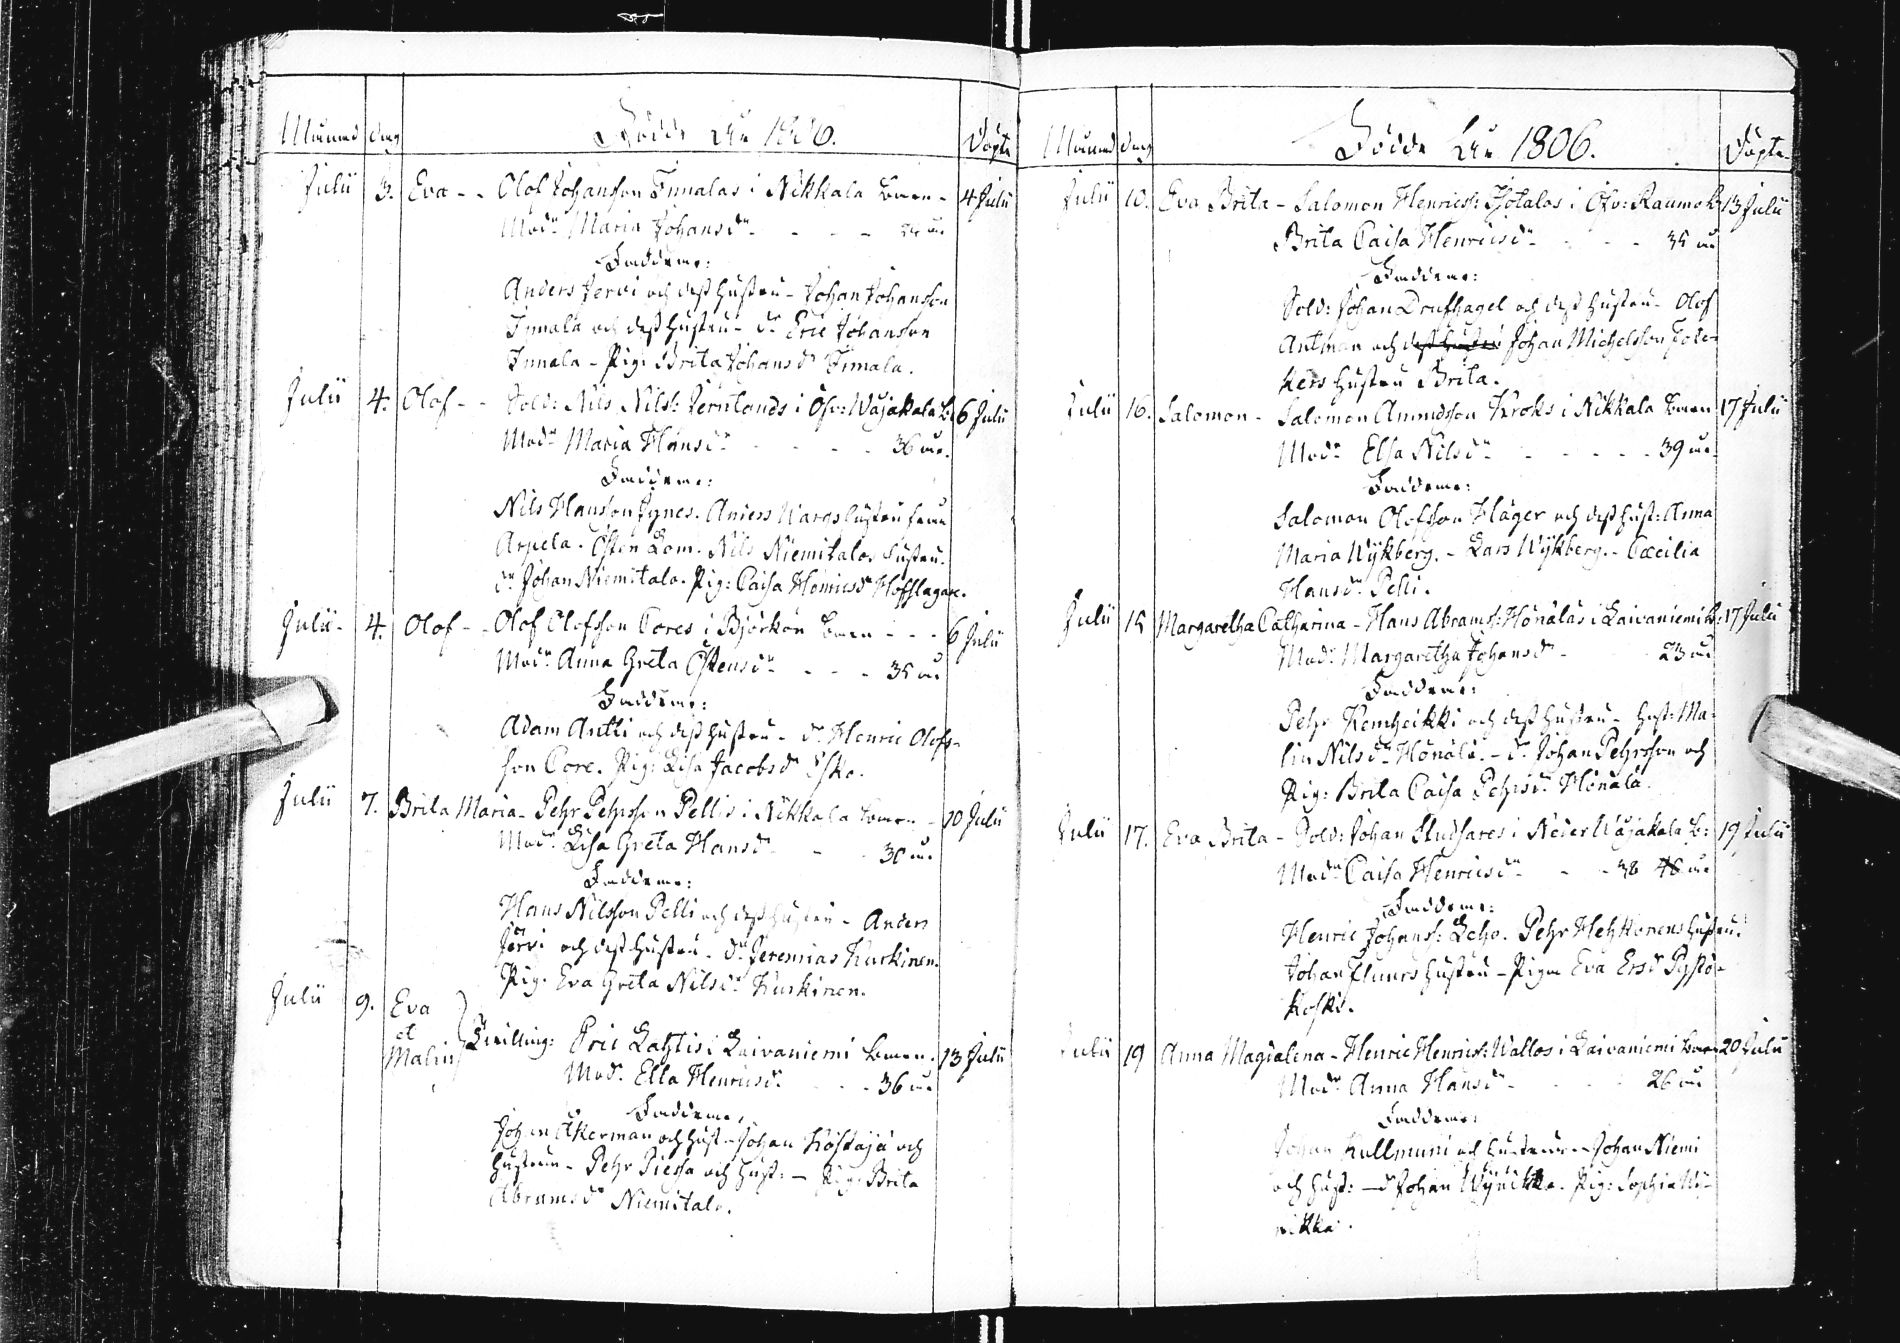 Månad dag Födde År 1806. Döpte
Julii 3. Eva - - Olof Johansson Innalas i Nikkala barn - 4 Julii
Modr Maria Johansdr - - - år
Faddrarne:
Anders Jervi och dess hustru - Johan Johansson
Innala och dess hustru - dr Eric Johansson
Innala - Pig: Brita Johansdr Innala.
Julii 4. Olof - - Sold: Nils Nilss: Jernlands i Öfv: Wojakala b: 6 Julii
Modr Maria Hansdr - - - - 36 år.
Faddrarne:
Nils Hansson Jynes. Anders Wargs hustru
Arpela. Östen Lom. Nils Niemitalos hustru.
dr Johan Niemitalo. Pig: Caisa Henricsdr
Julii - 4. Olof - - Olof Olofsson Cores i Björkön barn - - - 6 Julii
Modr Anna Greta Östensdr - - - 35 år
Faddrarne:
Adam Antti och dess hustru - dr Henric Olofs-
son Core. Pig: Lisa Jacobsdr Esko.
Julii 7. Brita Maria - Pehr Pehrsson Pellis i Nikkala barn - 10 Julii
Modr Lisa Greta Hansdr - - 30 år.
Faddrarne:
Hans Nilsson Pelli och dess hustru - Anders
Järvi och dess hustru - dr Jeremias Kurkinen.
Pig: Eva Greta Nilsdr Kurkinen.
Julii 9. Eva
et
Malin
Tvilling: Eric Lahtis i Laivaniemi barn. 13 Julii
Modr. Ella Henricsdr - - - 36 år.
Faddrarne:
Johan Åkerman och hust - Johan Koskaja och
hustrun - Pehr Piessa och hust: - Pig: Brita
Abramsdr Niemitalo.
Månad dag Födde År 1806. Döpte
Julii 10. Eva Brita - Salomon Henrics: i Öfv: Raumo b: 13 Julii
Brita Caisa Henricsdr - - - 35 år
Faddrarne:
Sold: Johan Drufhagel och dess hustru - Olof
Antman och Johan Michelsson
kers hustru Brita.
Julii 16. Salomon - Salomon Amundsson Kroks i Nikkala barn 17 Julii
Modr Elsa Nilsdr - - - - - 39 år.
Faddrarne:
Salomon Olofsson Häger och dess hust: Anna
Maria Wykberg. - Lars Wykberg. - Cæcilia
Hansdr Pelli.
Julii 15 Margaretha Catharina - Hans Abrams: Hönälas i Laivaniemi b: 17 Julii
Modr Margaretha Johansdr - 23 år
Faddrarne:
Pehr Kemheikki och dess hustru - hust: Ma-
lin Nilsdr Hönälä. - dr Johan Pehrsson och
Pig: Brita Caisa Pehrsdr Hönälä.
Julii 17. Eva Brita - Sold: Johan Studsares i Neder Wojakala b: 19 Julii
Modr Caisa Henricsdr - - 38 år
Faddrarne:
Henric Johanss: Leho. Pehr Hehkonens hustru.
Johan hustru - Pigan Eva Ersdr
koski.
Julii 19 Anna Magdalena - Henric Henrics: Wallos i Laivaniemi barn 20 Julii
Modr Anna Hansdr - - - 26 år
Faddrarne:
Johan Kullmuni och hustrun - Johan Niemi
och hust: - dr Johan Wynikka. Pig: Sophia Wy-
nikka.